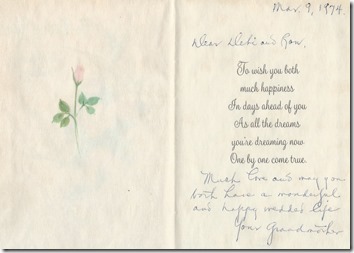 Mar. 9, 1974.
Dear Debi and Ron,
To wish you both
much happiness
In days ahead of you
As all the dreams
you're dreaming now
One by one come true.
Much love and may you
both have a wonderful
and happy wedded life
Your Grandmother